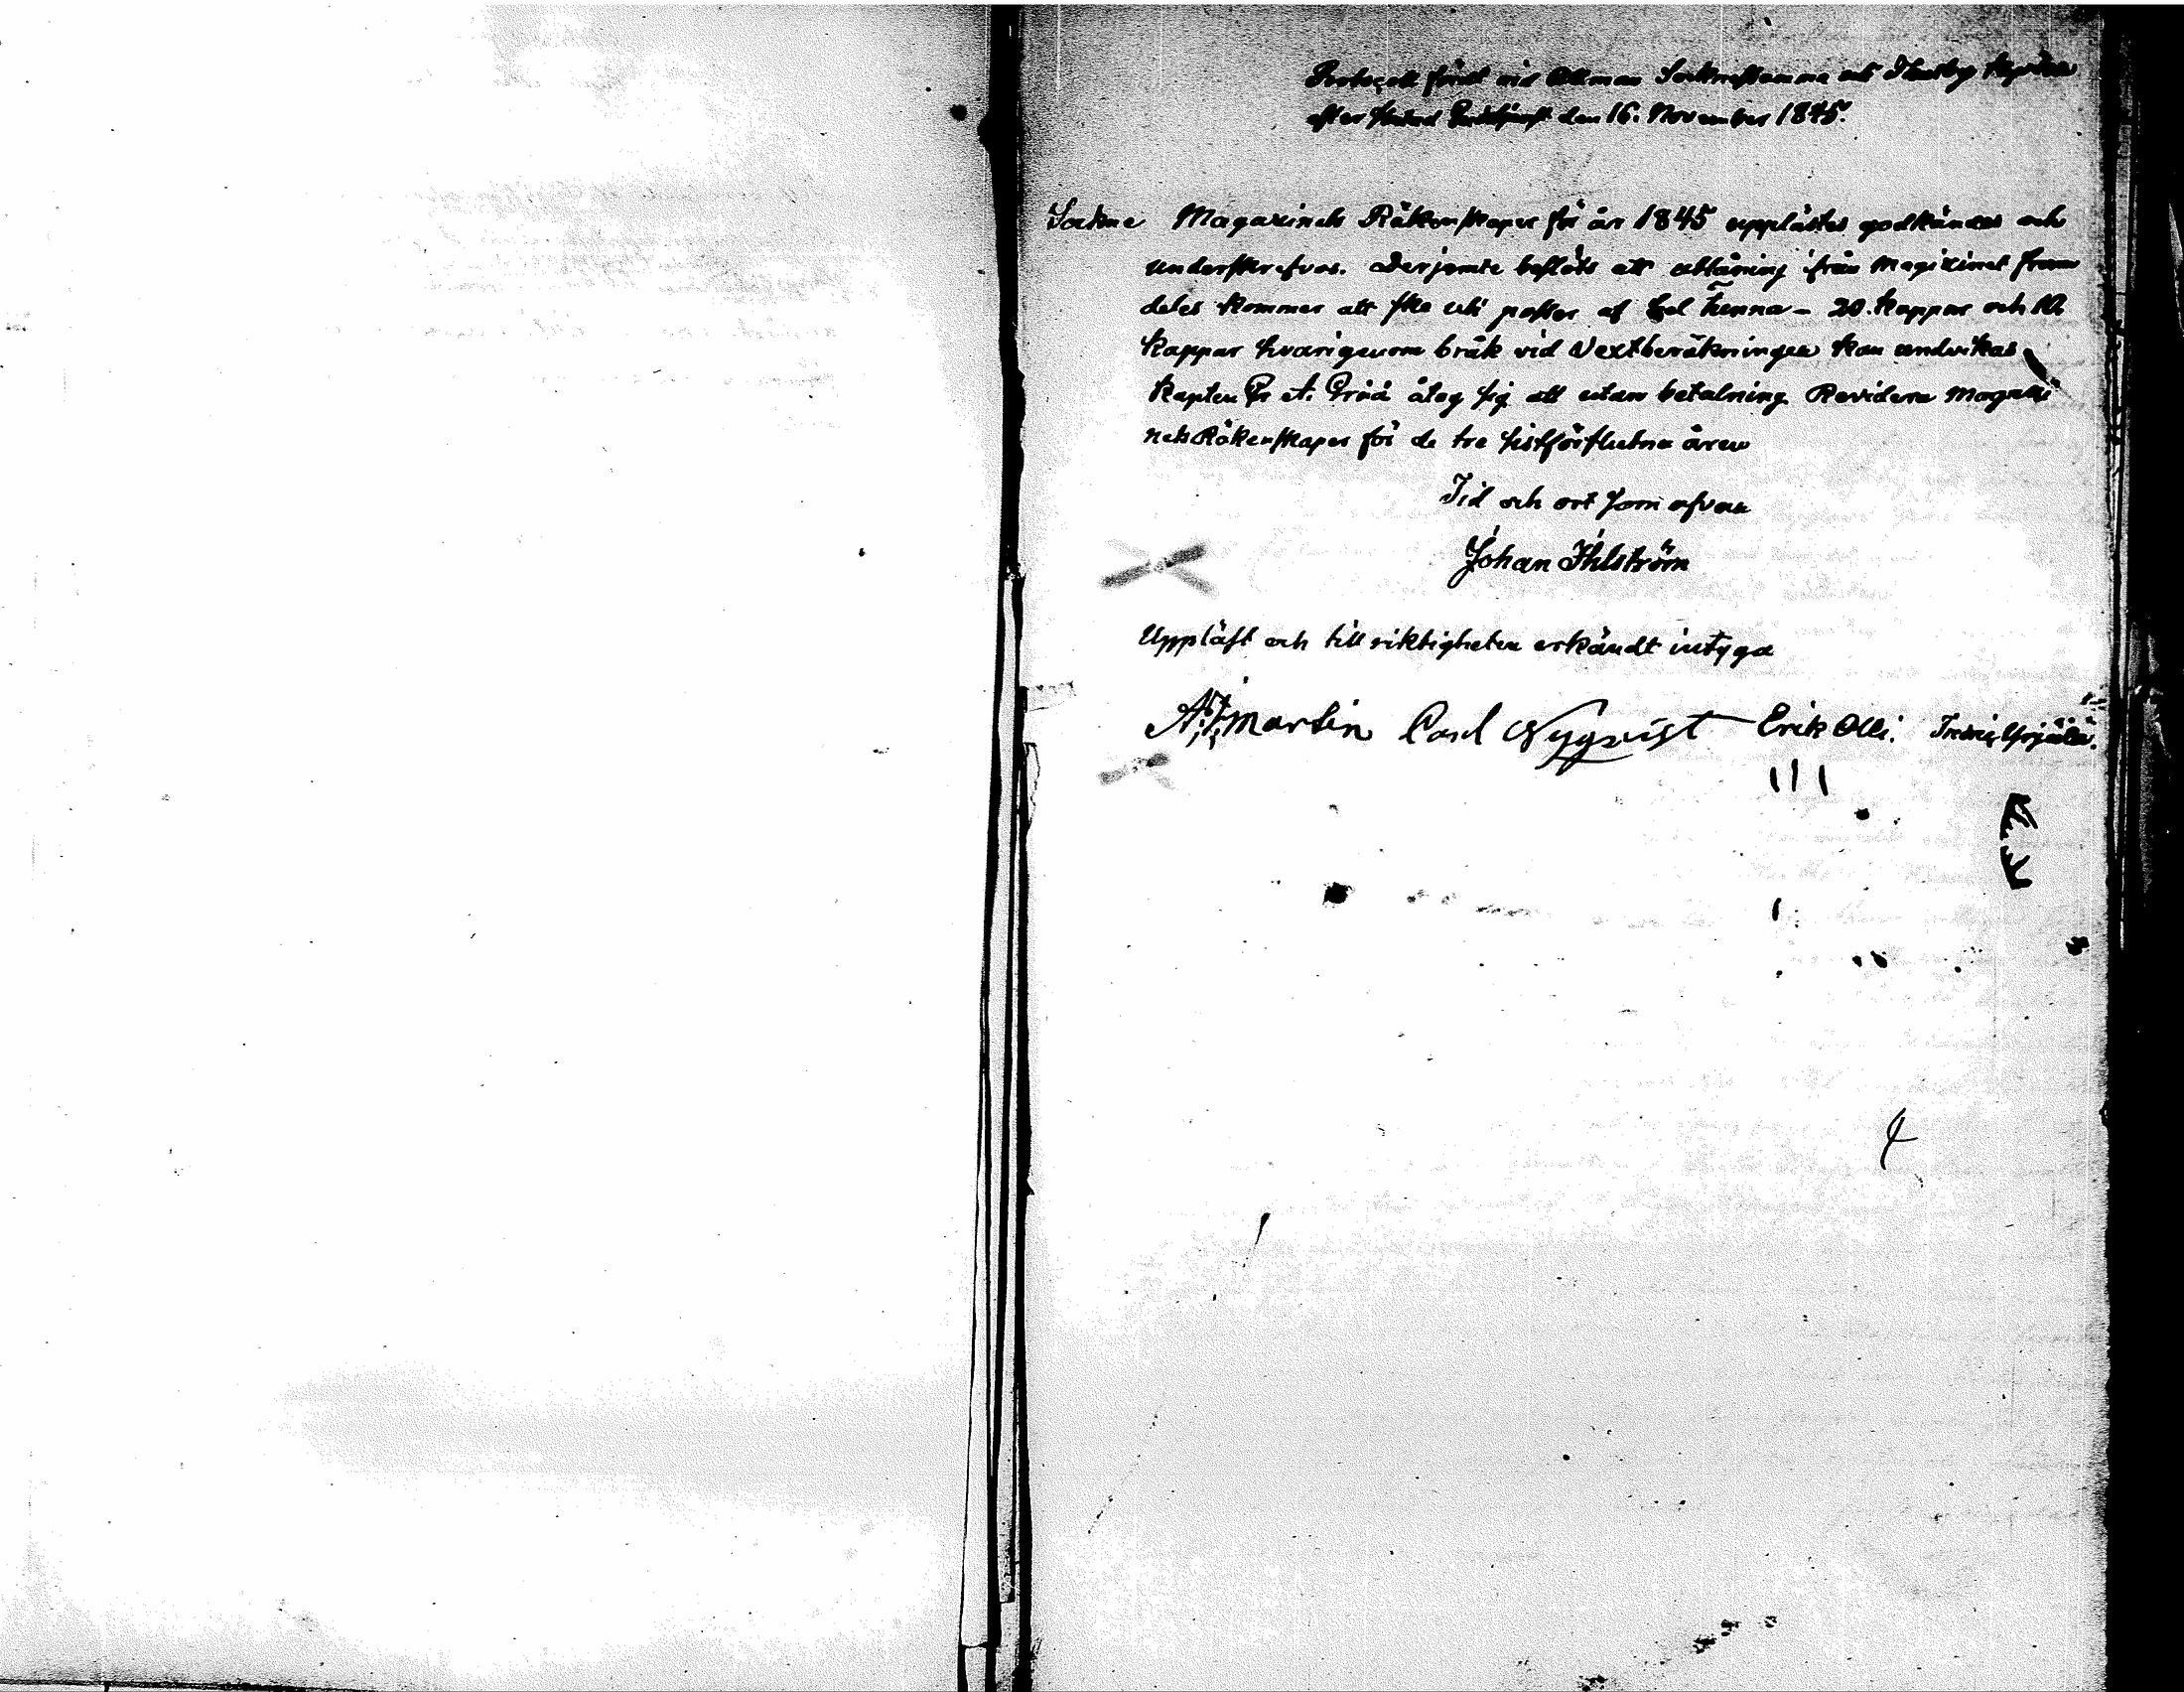 Protocoll fördt vid Allman Sockne stamma uti Thusby
after den 16. November 1845.
Sockne Magazinets Räkenskaper för år 1845 upplästes godkändes och
underskrefvos. Derjemte beslöts att utlåning ifrån Magazinet fram
deles kommer att ske uti poster af hel Tunna - 20. kappar och 10.
kappar hvarigenom bråk vid Vextberäkningen kan undvikas
Kapten åtog sig att utan betalning Revidera Magazi
nets Räkenskaper för de tre sistförflutna åren
Tid och ort som ofvan
Johan Ihlström
Uppläst och till riktigheten erkändt intyga
A. F. Martin Carl Nyqvist Erik Olli. Yrjälä.